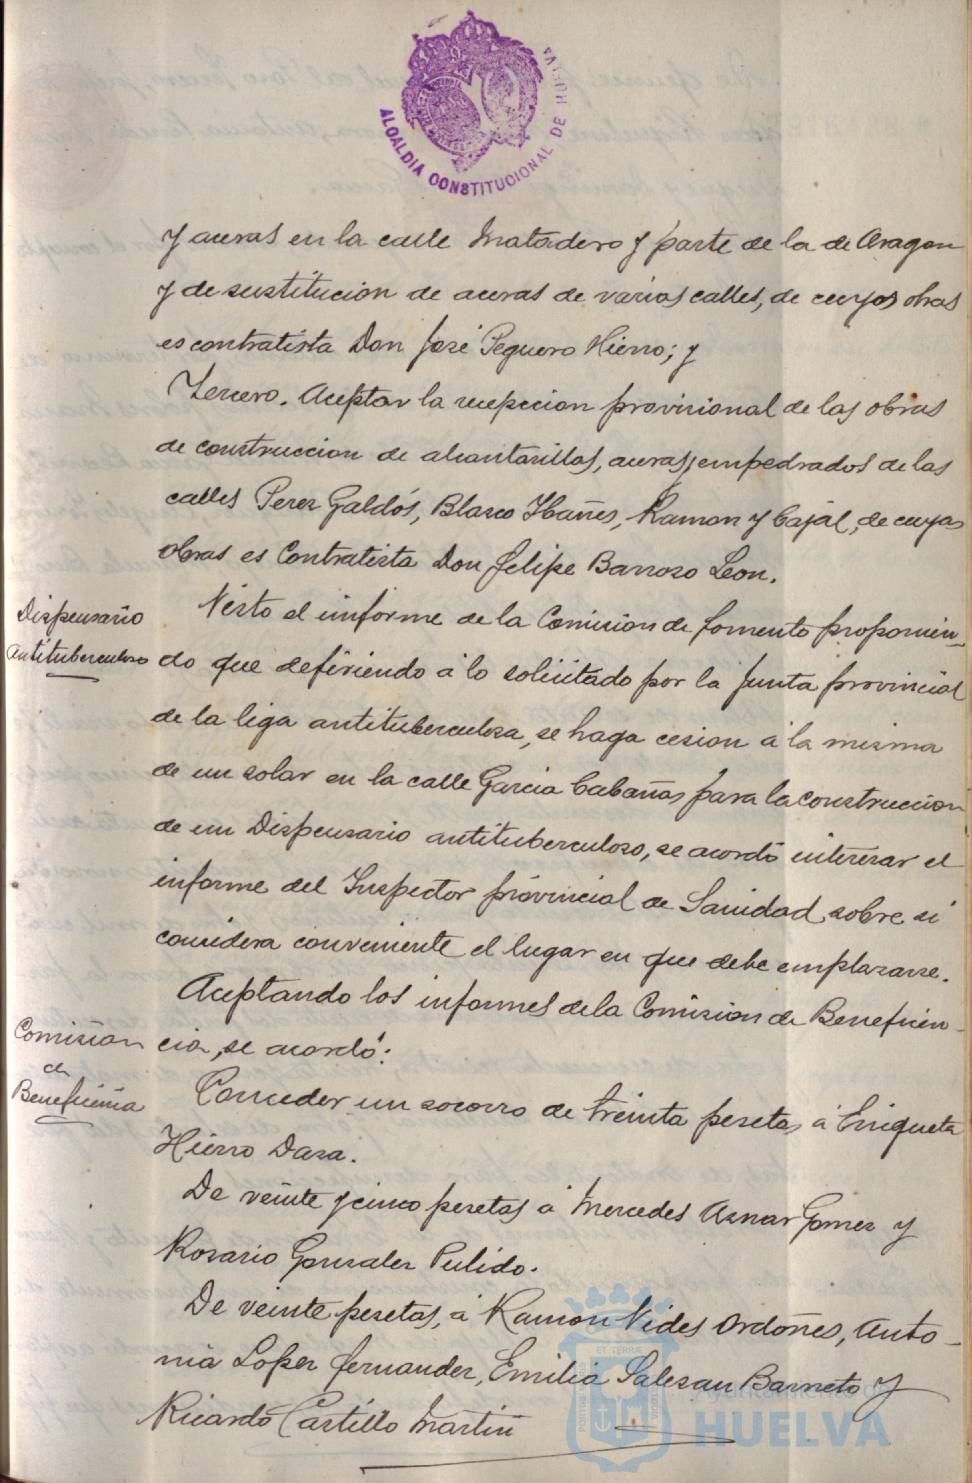 ALCALDIA CONSTITUCIONAL DE HUELVA
y aceras en la calle Matadero y parte de la de Aragon
y de sustitucion de aceras de varias calles, de cuyas obras
es contratista Don José Peguero Hierro; y
Tercero. Aceptar la recepcion provisional de las obras
de construccion de alcantarillas, aceras y empedrados de las
calles Perez Galdós, Blasco Ibañes, Ramon y Cajal, de cuyas
obras es Contratista Don Felipe Barroso Leon.
Dispensario
Antituberculoso
Visto el informe de la Comision de fomento proponien-
do que defiriendo á lo solicitado por la Junta provincial
de la liga antituberculosa, se haga cesion á la misma
de un solar en la calle Garcia Cabañas para la construccion
de un Dispensario antituberculoso, se acordó interesar el
informe del Inspector provincial de Sanidad sobre si
considera conveniente el lugar en que debe emplazarse.
Comision
de
Beneficencia
Aceptando los informes de la Comision de Beneficen-
cia, se acordó:
Conceder un socorro de treinta pesetas á Enriqueta
Hierro Daza.
De veinte y cinco pesetas á Mercedes Aznar Gomez y
Rosario Gonzalez Pulido.
De veinte pesetas, á Ramon Vides Ordoñes, Anto-
nia Lopez Fernandez, Emilia Salesau Barneto y
Ricardo Castillo Martin
ET TERRÆ
Ayuntamiento de
HUELVA